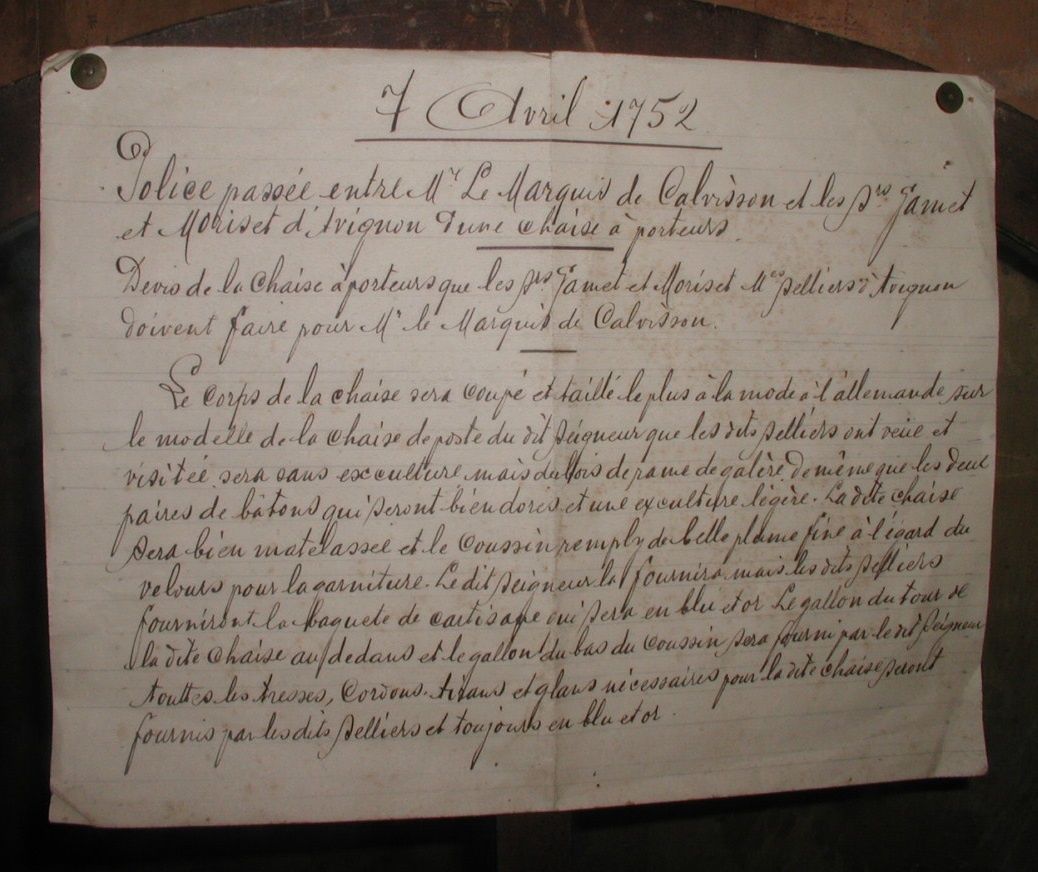 7 Avril 1752
Police passée entre Mr Le Marquis de Calvisson et les Srs Jamet
et Moriset d'Avignon d'une chaise à porteurs
Devis de la Chaise à porteurs que les Srs Jamet et Moriset Mes Selliers d'Avignon
doivent faire pour Mr le Marquis de Calvisson.
Le Corps de la chaise sera coupé et taillé le plus à la mode à l'allemande sur
le modelle de la chaise de poste du dit Seigneur que les dits Selliers ont veüe et
visitée sera sans exculture mais du bois de rame de galère de même que les deux
paires de bâtons qui seront bien dorés et une exculture légère. La dite chaise
sera bien matelassée et le Coussin remply de belle plume fine à l'égard du
velours pour la garniture. Le dit Seigneur la fournira mais les dits Selliers
fourniront la baguete de cartisane qui sera en blu et or Le gallon du tour de
la dite chaise au dedans et le gallon du bas du Coussin sera fourni par le dit Seigneur
touttes les tresses, Cordons tirans et glans nécessaires pour la dite chaise seront
fournis par les dits Selliers et toujours en blu et or.